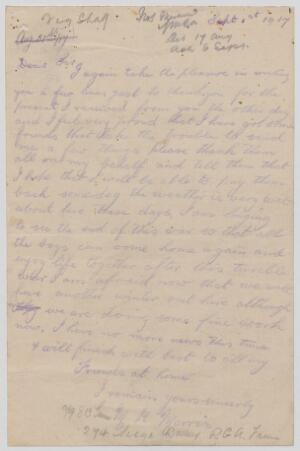 Sept 1st 1917
Ans 17 Aug
Ack 6 Sept.
Dear Sir, I again take the pleasure in writing
you a few lines just to thank you for the
present I received from you the other day
and I felt very proud that I have got some
friends that take the trouble to send
me a few things please thank them
all on my behalf and tell them that
I hope that I will be able to pay them
back some day the weather is very wet
about here these days, I am longing
to see the end of this war so that all
the boys can come home again and
enjoy life together after this terrible
war I am afraid now that we will
have another winter out here although
we are doing some fine work
now, I have no more news this time
& will finish with best to all my
Friends at home
I remain yours sincerely
Morris
294 Siege Battery R.G.A. France